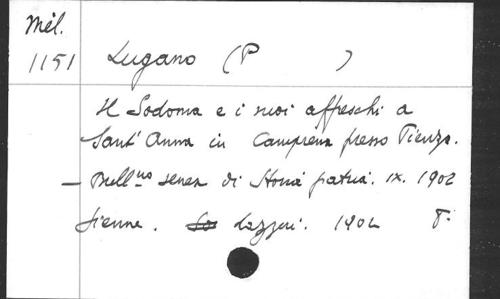 Mél.
1151 Lugano (P )
Il Sodoma e i suoi affreschi a
Sant' Anna in Camprena presso Pienza.
— Bull.no senese di Storia patria. IX. 1902
Sienne. Lazzeri. 1902 8º